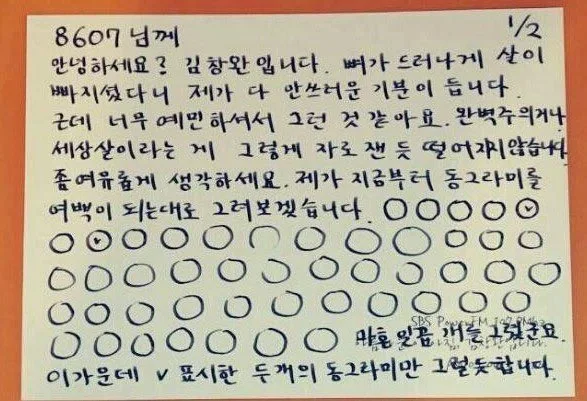 8607님께 1/2
안녕하세요? 김창완입니다. 뼈가 드러나게 살이
빠지셨다니 제가 다 안쓰러운 기분이 듭니다.
근데 너무 예민하셔서 그런 것 같아요. 완벽주의거나
세상살이라는 게 그렇게 자로 잰 듯 떨어지지 않습니다
좀 여유롭게 생각하세요. 제가 지금부터 동그라미를
여백이 되는대로 그려보겠습니다.
SBS Power FM 107.7MHz
마흔 일곱 개를 그렸군요.
이 가운데 v 표시한 두 개의 동그라미만 그럴듯합니다.